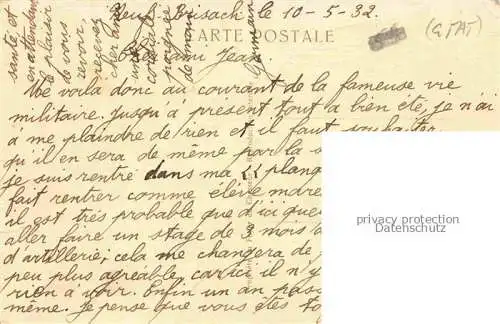 Neuf-Brisach le 10-5-32.
(ETAT)
CARTE POSTALE
ami Jean
Me voilà donc au courant de la fameuse vie
militaire. Jusqu'à présent tout a bien été, je n'ai
à me plaindre de rien et il faut souhaiter
qu'il en sera de même par la s
je suis rentré dans ma
fait rentrer comme élève
il est très probable que d'ici que
aller faire un stage de 3 mois
d'artillerie; cela me changera de
peu plus agréable, car ici il n'y
rien à voir. Enfin un an
même. Je pense que vous êtes to
santé et
en attendant
le plaisir
de vous
revoir,
recevez
cher
cordiale
poignée
de main
privacy protection